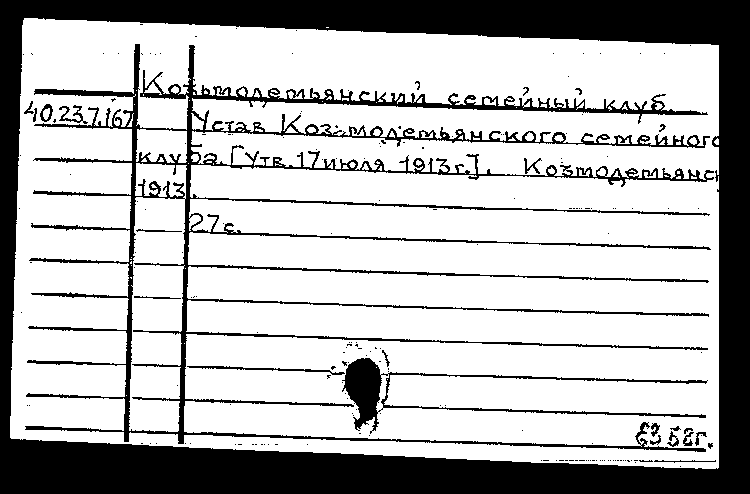 Козьмодемьянский семейный клуб.
40.23.7.167 Устав Козьмодемьянского семейного
клуба. [Утв. 17 июля 1913 г.]. Козмодемьянск
1913.
27 с.
58г.